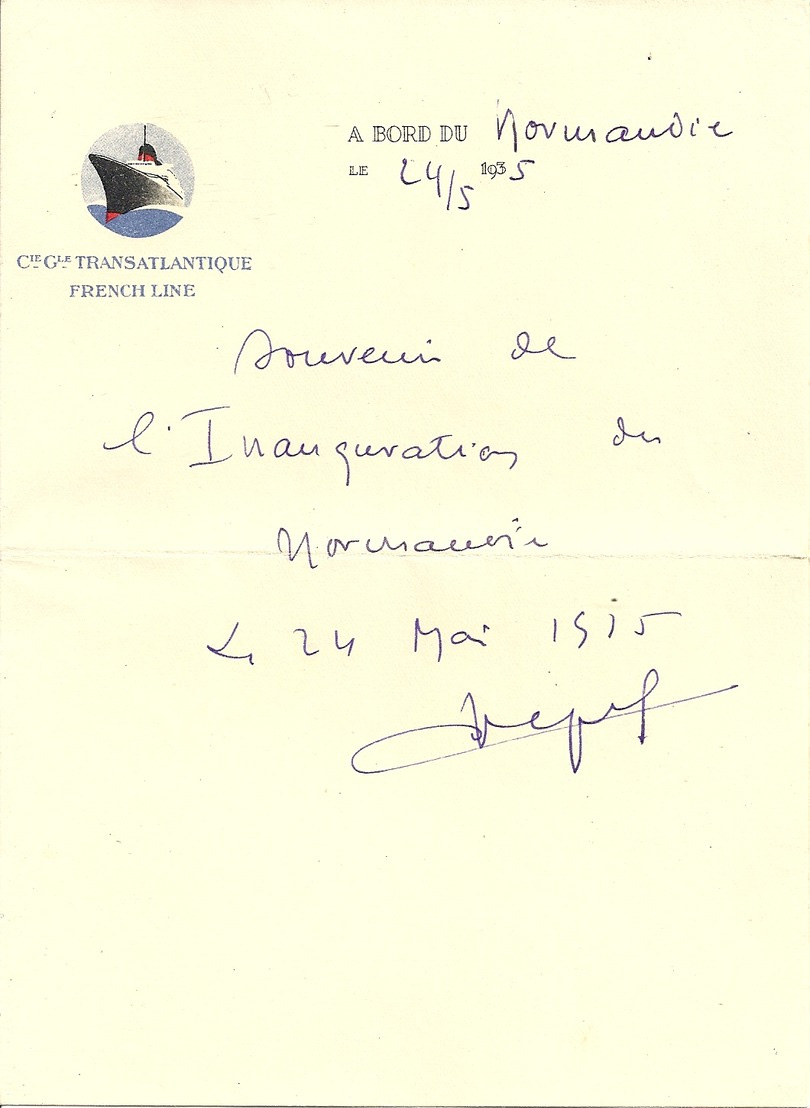 A BORD DU Normandie
LE 24/5 1935
CIE GLE TRANSATLANTIQUE
FRENCH LINE
Souvenir de
l'Inauguration du
Normandie
Le 24 Mai 1935